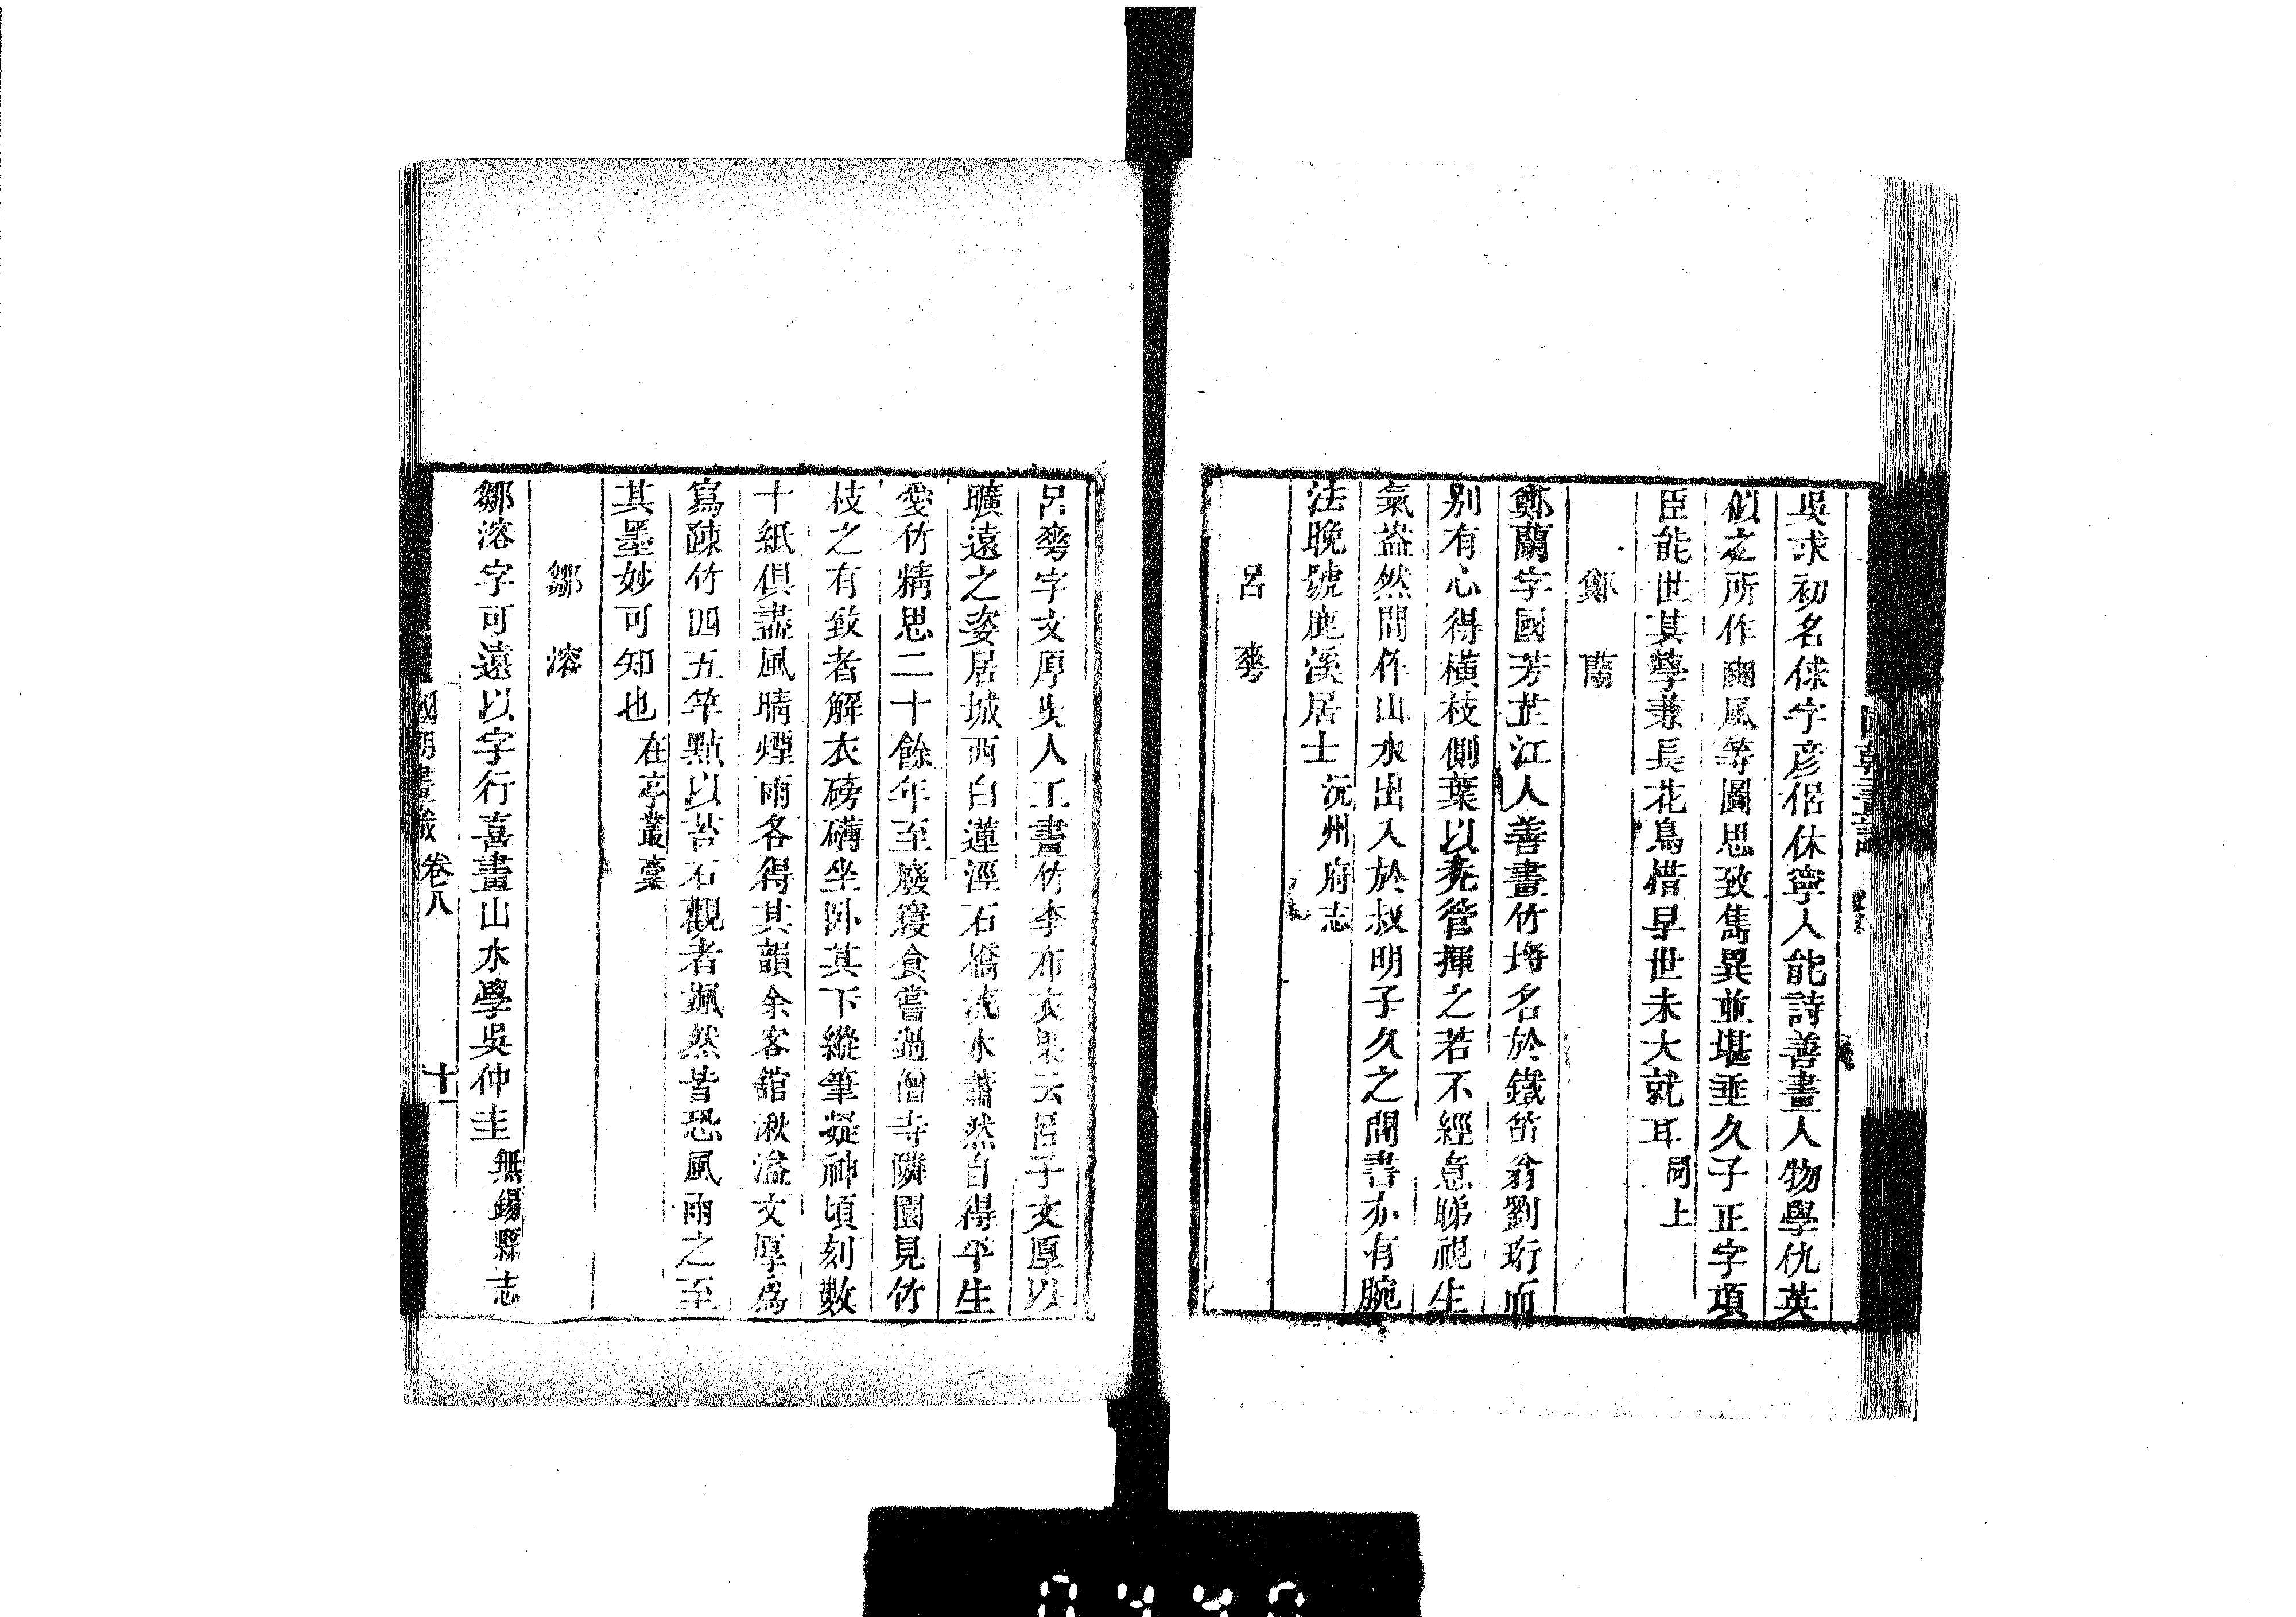 吳求初名俅字彥侶休寧人能詩善畫人物學仇英
似之所作豳風等圖思致雋異並堪垂久子正字項
臣能世其學兼長花鳥惜早世未大就耳同上
鄭蘭
鄭蘭字國芳芷江人善畫竹埓名於鐵笛翁劉珩而
別有心得橫枝側葉以禿管揮之若不經意睇視生
氣盎然間作山水出入於叔明子久之間書亦有腕
法晚號鹿溪居士沅州府志
呂㻞
字文原吳人工畫竹李布衣果云呂子文原以
曠遠之姿居城西白蓮涇石橋流水蕭然自得平生
愛竹精思二十餘年至廢寢食嘗過僧寺隣園見竹
枝之有致者解衣磅礴坐卧其下縱筆凝神頃刻數
十紙俱盡風晴煙雨各得其韻余客館湫溢文厚爲
寫疎竹四五竿點以苔石觀者颯然皆恐風雨之至
其墨妙可知也在亭叢稾
鄒溶
鄒溶字可遠以字行喜畫山水學吳仲圭無錫縣志
國朝畫識 卷八 十一